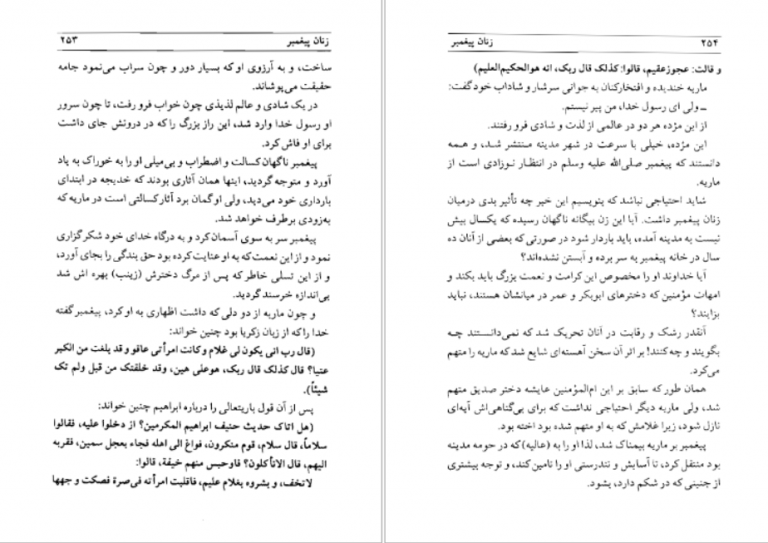 زنان پیغمبر ۲۵۳
ساخت، و به آرزوی او که بسیار دور و چون سراب می‌نمود جامه
حقیقت می‌پوشاند.
در یک شادی و عالم لذیذی چون خواب فرو رفت، تا چون سرور
او رسول خدا وارد شد، این راز بزرگ را که در درونش جای داشت
برای او فاش کرد.
پیغمبر ناگهان کسالت و اضطراب و بی‌میلی او را به خوراک به یاد
آورد و متوجه گردید، اینها همان آثاری بودند که خدیجه در ابتدای
بارداری خود می‌دید، ولی او گمان برد آثار کسالتی است در ماریه که
به‌زودی برطرف خواهد شد.
پیغمبر سر به سوی آسمان کرد و به درگاه خدای خود شکرگزاری
نمود و از این نعمت که به او عنایت کرده بود حق بندگی را بجای آورد،
و از این تسلی خاطر که پس از مرگ دخترش (زینب) بهره اش شد
بی‌اندازه خرسند گردید.
و چون ماریه از دو دلی که داشت اظهاری به او کرد، پیغمبر گفته
خدا را که از زبان زکریا بود چنین خواند:
(قال رب انی یکون لی غلام وکانت امرأتی عاقو و قد بلغت من الکبر
عتیا؟ قال کذلک قال ربک، هوعلی هین، وقد خلقتک من قبل ولم تک
شیئاً).
پس از آن قول باریتعالی را درباره ابراهیم چنین خواند:
(هل اتاک حدیث حنیف ابراهیم المکرمین؟ از دخلوا علیه، فقالوا
سلاماً، قال سلام، قوم منکرون، فواغ الی اهله فجاء بعجل سمین، فقربه
الیهم، قال الاتأکلون؟ فاوحبس منهم خیفة، قالوا:
لاتخف، و بشروه بغلام علیم، فاقلبت امرأته فی‌صرة فصکت و جهها
۲۵۴ زنان پیغمبر
و قالت: عجوزعقیم، قالوا: کذلک قال ربک، انه هوالحکیم‌العلیم)
ماریه خندیده و افتخارکنان به جوانی سرشار و شاداب خود گفت:
ـ ولی ای رسول خدا، من پیر نیستم.
از این مژده هر دو در عالمی از لذت و شادی فرو رفتند.
این مژده، خیلی با سرعت در شهر مدینه منتشر شد، و همه
دانستند که پیغمبر صلی‌الله علیه وسلم در انتظار نوزادی است از
ماریه.
شاید احتیاجی نباشد که بنویسیم این خبر چه تأثیر بدی درمیان
زنان پیغمبر داشت. آیا این زن بیگانه ناگهان رسیده که یکسال بیش
نیست به مدینه آمده، باید باردار شود در صورتی که بعضی از آنان ده
سال در خانه پیغمبر به سر برده و آبستن نشده‌اند؟
آیا خداوند او را مخصوص این کرامت و نعمت بزرگ باید بکند و
امهات مؤمنین که دخترهای ابوبکر و عمر در میانشان هستند، نباید
بزایند؟
آنقدر رشک و رقابت در آنان تحریک شد که نمی‌دانستند چه
بگویند و چه کنند! بر اثر آن سخن آهسته‌ای شایع شد که ماریه را متهم
می‌کرد.
همان طور که سابق بر این ام‌المؤمنین عایشه دختر صدیق متهم
شد، ولی ماریه دیگر احتیاجی نداشت که برای بی‌گناهی‌اش آیه‌ای
نازل شود، زیرا غلامش که به او متهم شده بود اخته بود.
پیغمبر بر ماریه بیمناک شد، لذا او را به (عالیه)که در حومه مدینه
بود منتقل کرد، تا آسایش و تندرستی او را تامین کند، و توجه بیشتری
از جنینی که در شکم دارد، بشود.